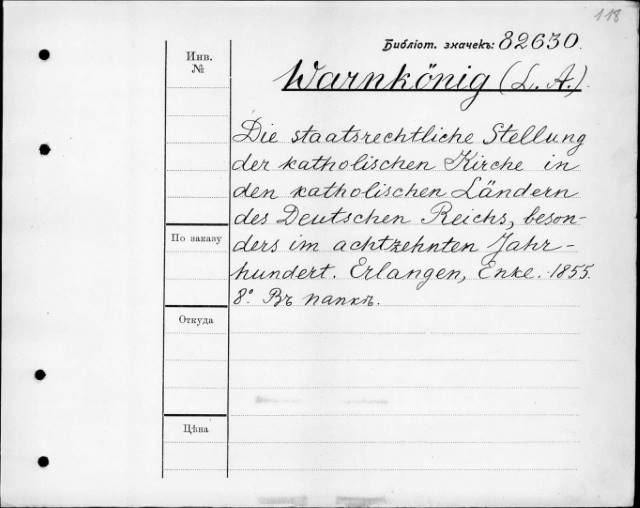 118
Библіот. значекъ: 82630.
Инв.
№
Warnkönig (L. A.).
Die staatsrechtliche Stellung
der katholischen Kirche in
den katholischen Ländern
des Deutschen Reichs, beson-
По заказу
ders im achtzehnten Jahr-
hundert. Erlangen, Enke. 1855.
8º. Въ папкѣ.
Откуда
Цѣна